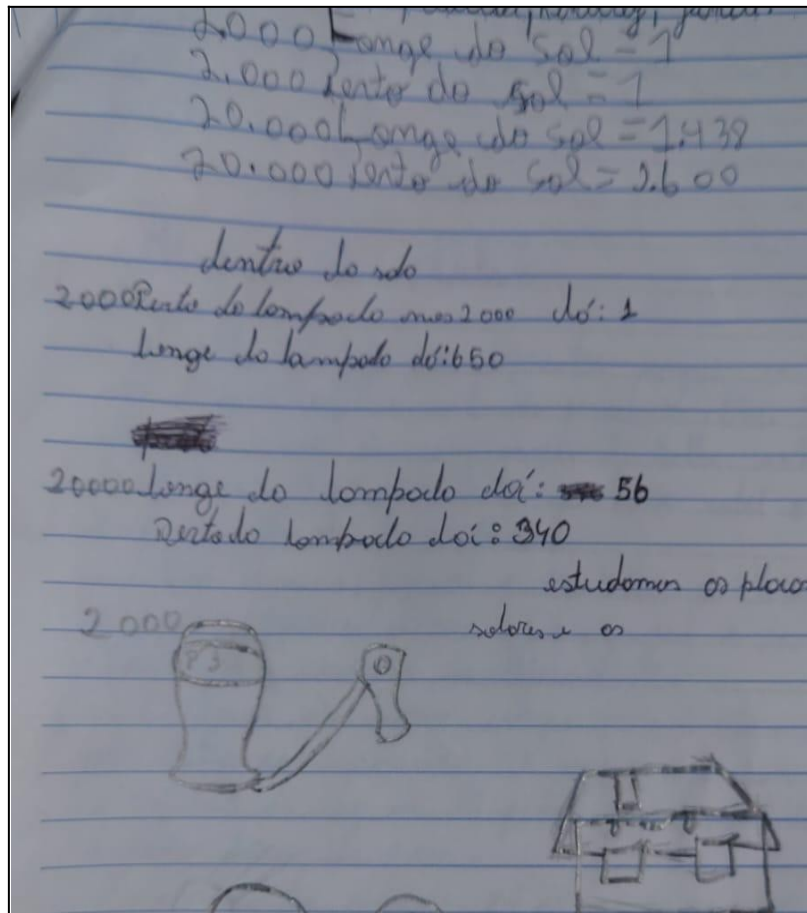 2.000 Longe do sol = 1
2.000 Perto do sol = 1
20.000 Longe do sol = 1.438
20.000 Perto do sol = 2.600
dentro do
2000 Perto do lompado nos 2000 dó: 1
longe do lampado dó: 650
20000 longe do lompado doí: 56
Perto do lombado doí: 340
estudomos os placo
solores e os
2000